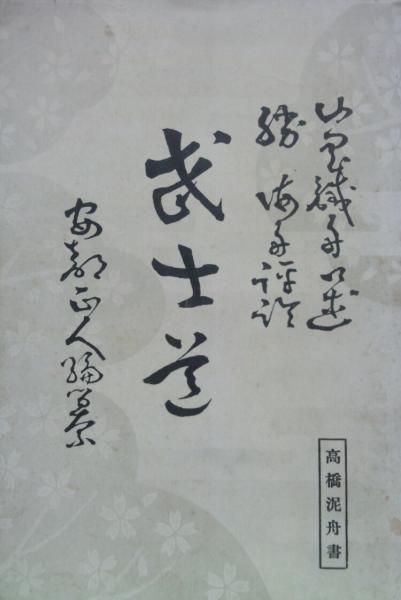 山岡鐵舟口述
勝海舟評論
武士道
安部正人編纂
高橋泥舟書